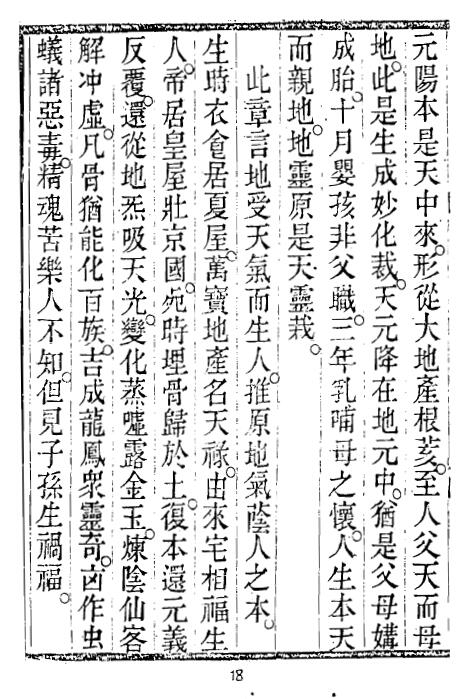 元陽本是天中來。形從大地產根荄。至人父天而母
地。此是生成妙化裁。天元降在地元中。猶是父母媾
成胎。十月嬰孩非父職。三年乳哺母之懷。人生本天
而親地。地靈原是天靈栽。
此章言地受天氣而生人。推原地氣蔭人之本。
生時衣食居夏屋。萬寶地產名天祿。由來宅相福生
人。帝居皇屋壯京國。死時埋骨歸於土。復本還元義
反覆。還從地炁吸天光。變化蒸噓露金玉。煉陰仙客
解冲虛。凡骨猶能化百族。吉成龍鳳衆靈奇。凶作虫
蟻諸惡毒。精魂苦樂人不知。但見子孫生禍福。
18